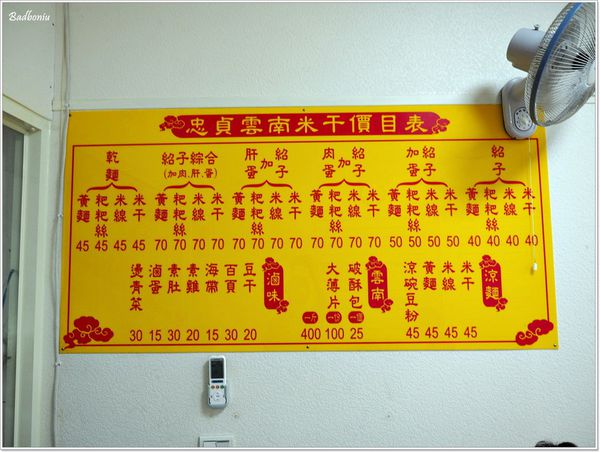 Badboniu
忠貞雲南米干價目表
紹子
米干 米線 粑粑絲 黃麵
40 40 40 40
紹子加蛋
米干 米線 粑粑絲 黃麵
50 50 50 50
紹子加肉蛋
米干 米線 粑粑絲 黃麵
70 70 70 70
紹子加肝蛋
米干 米線 粑粑絲 黃麵
70 70 70 70
紹子綜合
(加肉.肝.蛋)
米干 米線 粑粑絲 黃麵
70 70 70 70
乾麵
米干 米線 粑粑絲 黃麵
45 45 45 45
涼麵
米干 45
米線 45
黃麵 45
涼碗豆粉 45
雲南
破酥包 一個 25
大薄片 一份 100 一斤 400
滷味
豆干 20
百頁 30
海帶 15
素雞 20
素肚 30
滷蛋 15
燙青菜 30